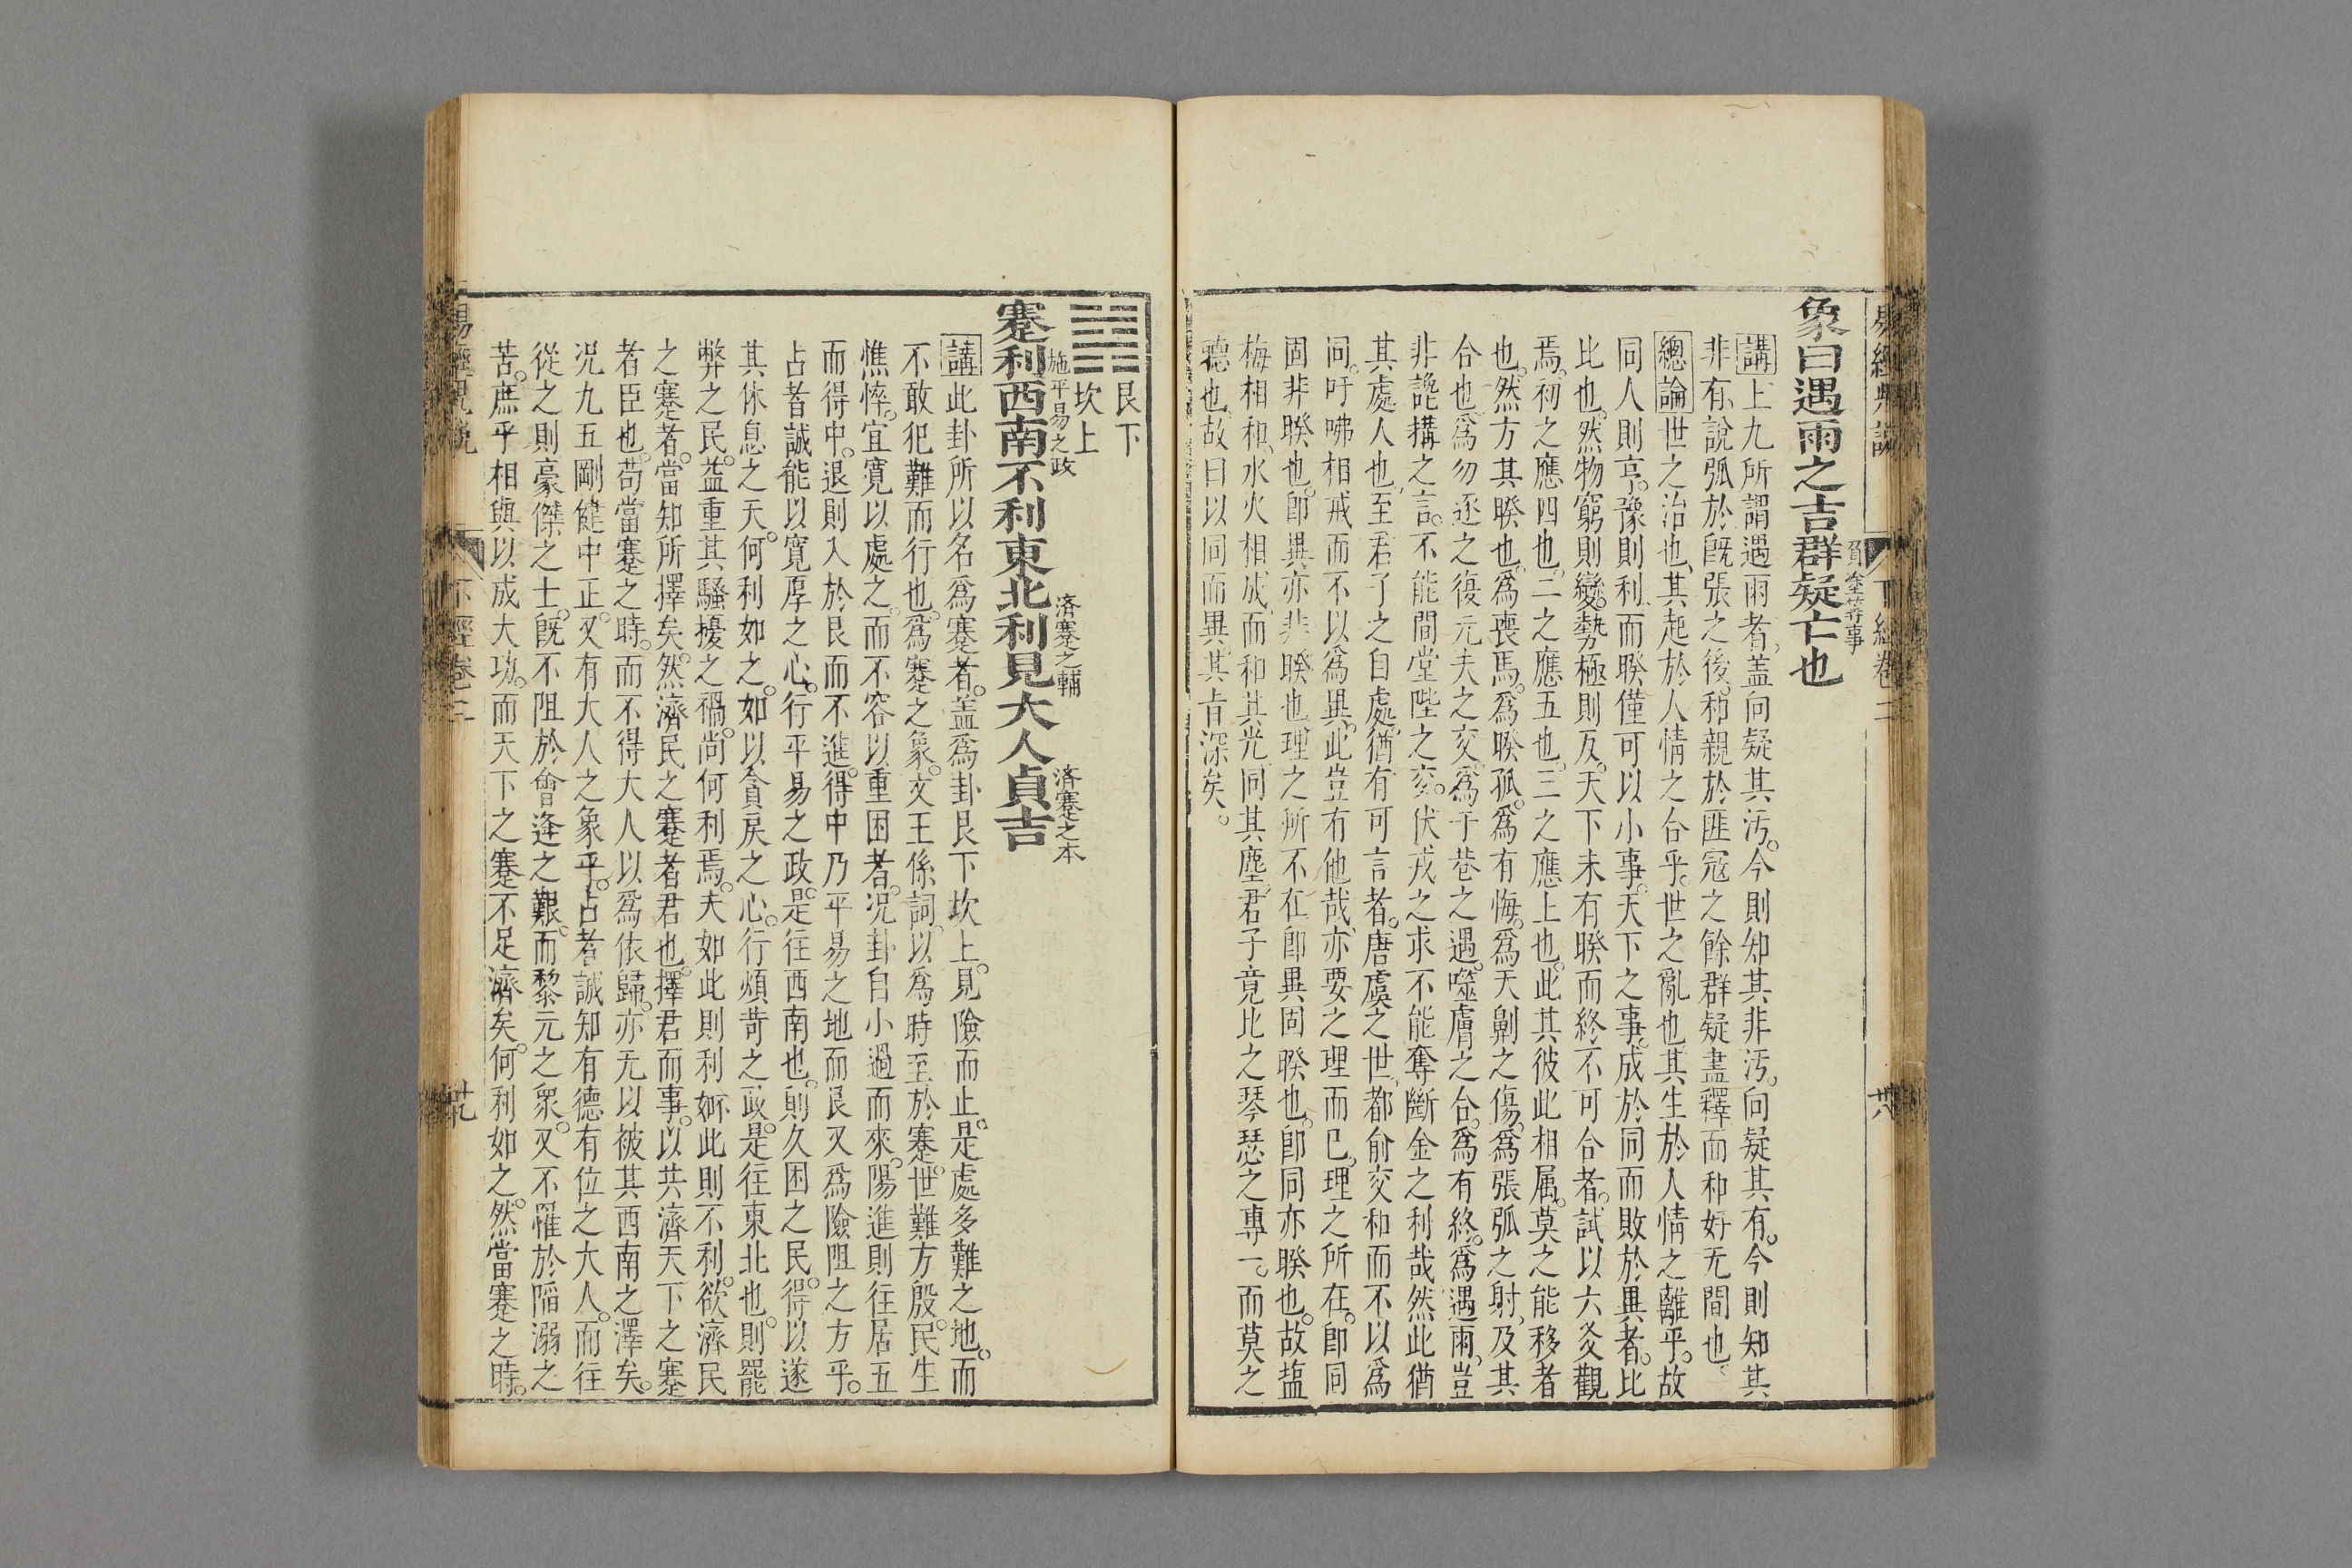 象曰遇雨之吉群疑亡也
負塗等事
講上九所謂遇雨者盖向疑其汚。今則知其非汚。向疑其有。今則知其
非有。說弧於旣張之後。和親於匪寇之餘群疑盡釋而和好无間也。
總論世之治也、其起於人情之合乎。世之亂也其生於人情之離乎。故
同人則亨。豫則利、而睽僅可以小事。天下之事。成於同而敗於異者。比
比也。然物窮則變。勢極則反。天下未有睽而終不可合者。試以六爻觀
焉。初之應四也、二之應五也、三之應上也。此其彼此相属。莫之能移者
也。然方其睽也、爲喪馬。爲睽孤。爲有悔。爲天劓之傷。爲張弧之射、及其
合也、爲勿逐之復元夫之交、爲于巷之遇。噬膚之合。爲有終。爲遇雨、豈
非讒搆之言。不能間堂陛之交。伏戎之求不能奪斷金之利哉然此猶
其處人也、至君子之自處、猶有可言者。唐虞之世、都俞交和而不以爲
同。吁咈相戒而不以爲異。此豈有他哉、亦要之理而已。理之所在。卽同
固非睽也。卽異亦非睽也理之所不在卽異固睽也。卽同亦睽也。故鹽
梅相和、水火相成、而和其光、同其塵、君子竟比之琴瑟之專一。而莫之
聽也、故曰以同而異。其旨深矣。
易經
下經卷二
共
艮下
坎上
施平易之政
済蹇之輔
済蹇之本
蹇利西南不利東北利見大人貞吉
講此卦所以名爲蹇者。盖爲卦艮下坎上。見險而止。是處多難之地。而
不敢犯難而行也。爲蹇之象。文王係詞。以爲時至於蹇。世難方殷。民生
憔悴。宜寬以處之。而不容以重困者。况卦自小過而來。陽進則往居五
而得中。退則入於艮而不進。得中乃平易之地而艮又爲險阻之方乎。
占者誠能以寬厚之心。行平易之政。是往西南也。則久困之民。得以遂
其休息之天。何利如之。如以貪戾之心。行煩苛之政。是往東北也。則罷
弊之民。益重其騷擾之禍。尚何利焉。夫如此則利如此則不利。欲濟民
之蹇者。當知所擇矣。然濟民之蹇者君也。擇君而事。以共濟天下之蹇
者臣也。苟當蹇之時。而不得大人以爲依歸。亦无以被其西南之澤矣。
况九五剛健中正。又有大人之象乎。占者誠知有德有位之大人。而往
從之則豪傑之士。旣不阻於會逢之艱。而黎元之衆。又不罹於陷溺之
苦。庶乎相與以成大功。而天下之蹇不足濟矣。何利如之。然當蹇之時。
易經
下經卷二